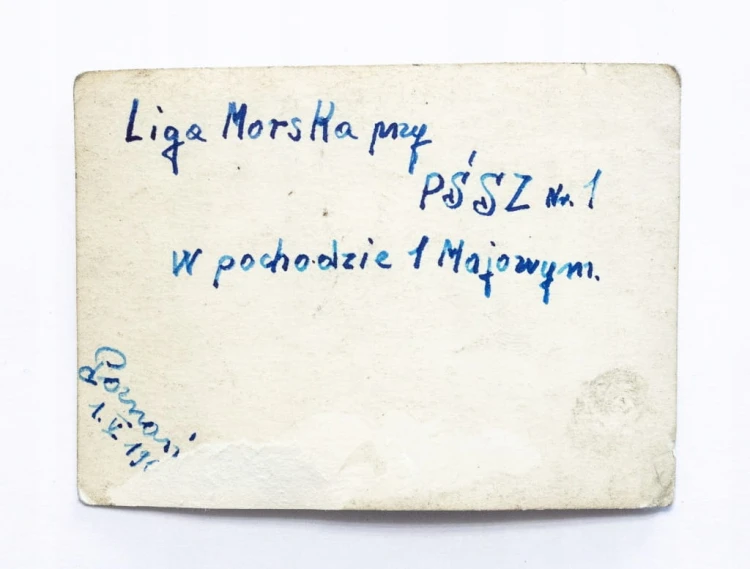 Liga Morska przy
PŚSZ Nr. 1
W pochodzie 1 Majowym.
Poznań
1. V 19